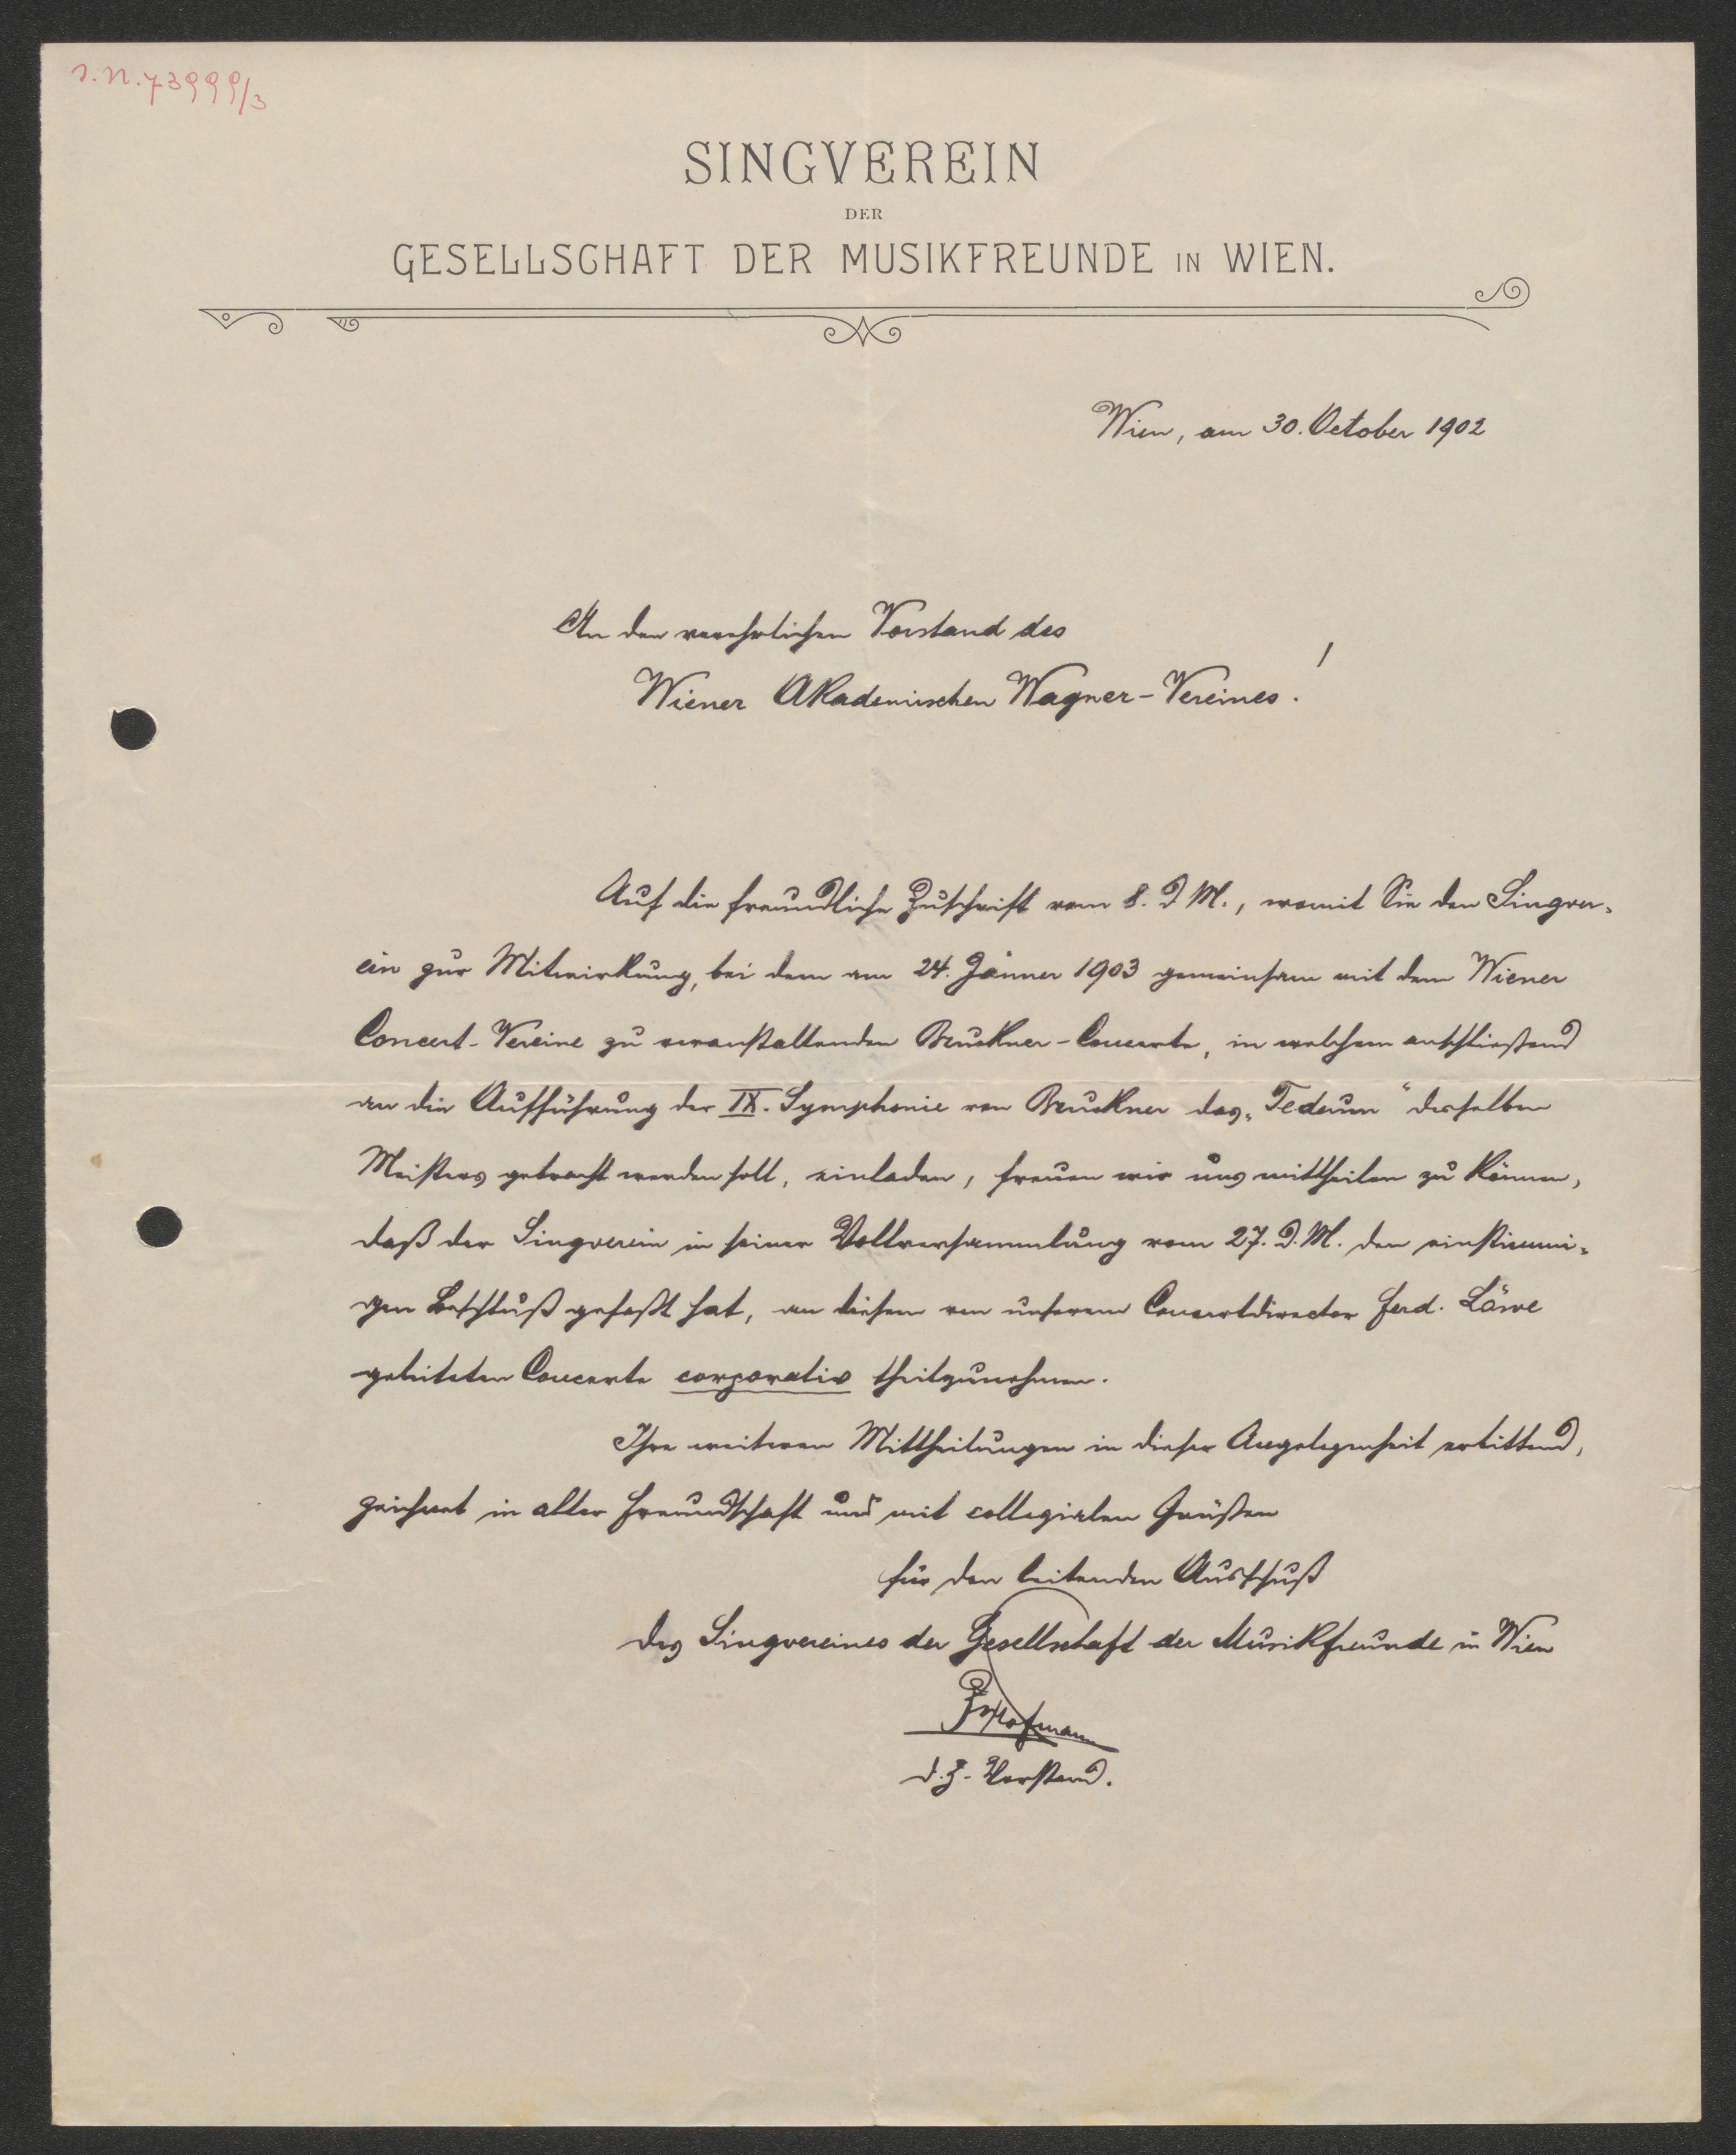 I.N. 73999/3
SINGVEREIN
DER
GESELLSCHAFT DER MUSIKFREUNDE IN WIEN.
Wien, am 30. October 1902
An den verehrlichen Vorstand des
Wiener Akademischen Wagner-Vereines!
Auf die freundliche Zuschrift vom 8. d. M., womit Sie den Singver-
ein zur Mitwirkung, bei dem am 24. Jänner 1903 gemeinsam mit dem Wiener
Concert-Vereine zu veranstaltenden Bruckner-Concerte, in welchem anschließend
an die Aufführung der IX. Symphonie von Bruckner das „Tedeum“ desselben
Meisters gebracht werden soll, einladen, freuen wir uns mittheilen zu können,
daß der Singverein in seiner Vollversammlung vom 27. d. M. den einstimmi-
gen Beschluß gefaßt hat, an diesem von unserem Concertdirector Ferd. Löwe
geleiteten Concerte corporativ theilzunehmen.
Ihre weiteren Mittheilungen in dieser Angelegenheit erbittend,
zeichnet in alter Freundschaft und mit collegialen Grüßen
für den leitenden Ausschuß
des Singvereines der Gesellschaft der Musikfreunde in Wien
Hofmann
d. Z. Vorstand.